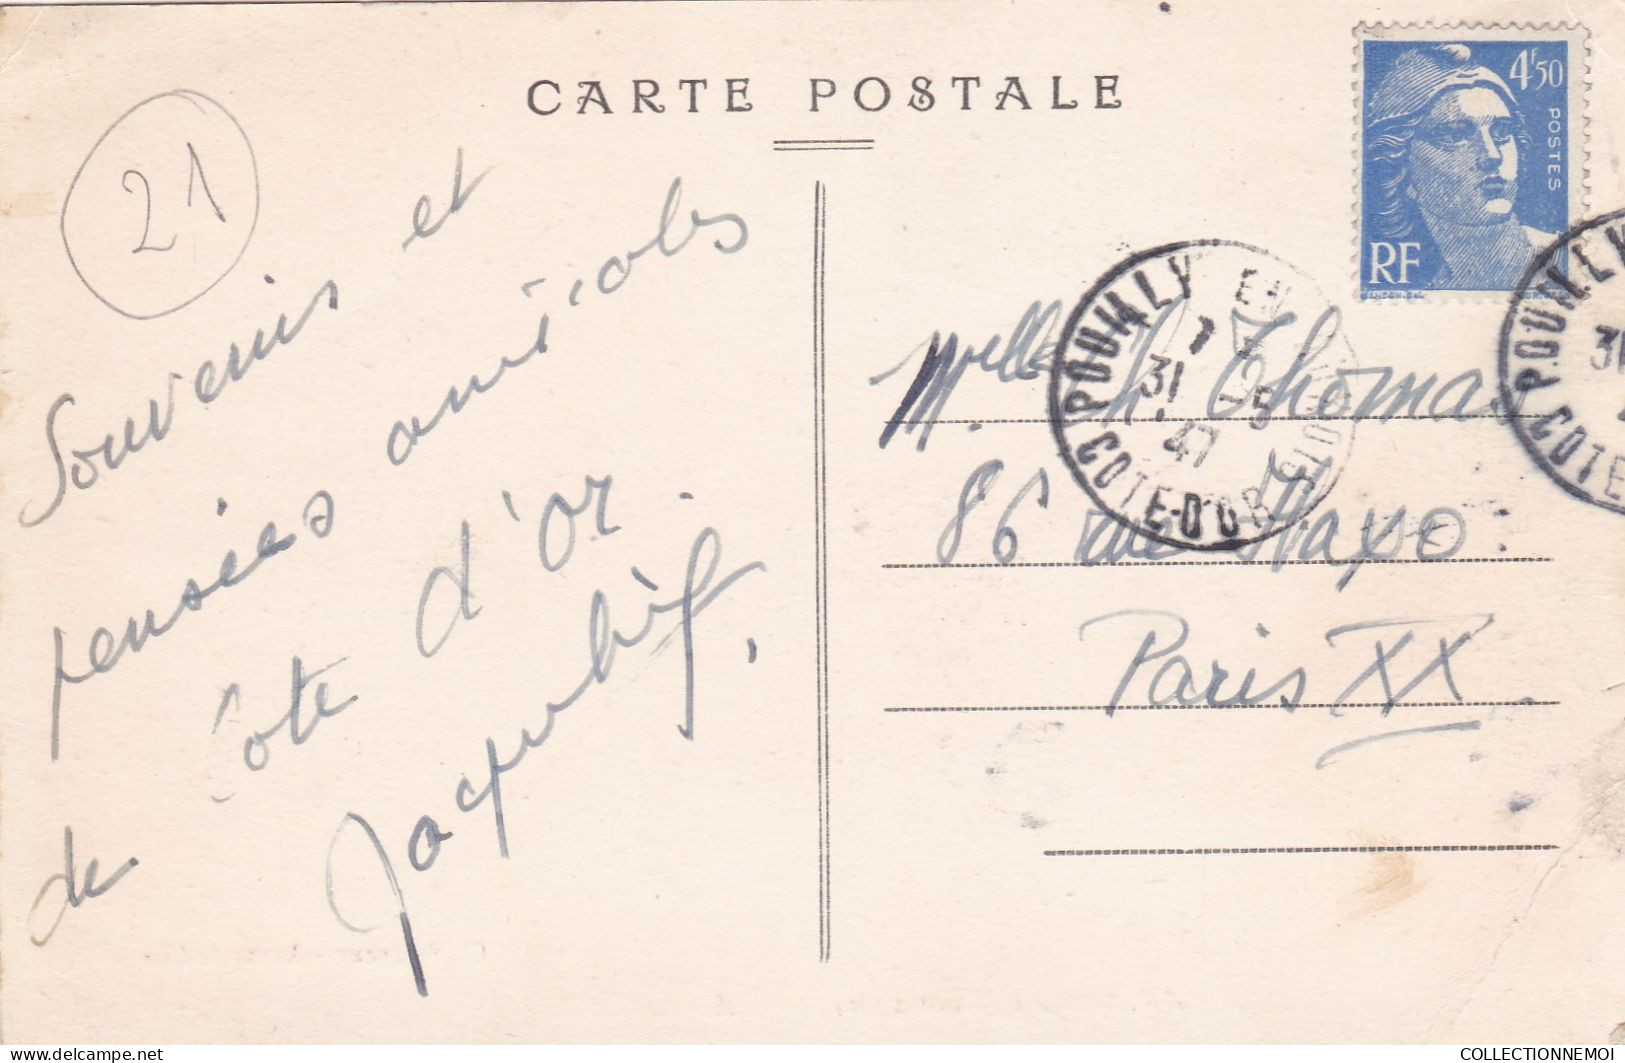 CARTE POSTALE
21
Souvenirs et
pensées amicales
de côte d'or
4F50
POSTES
RF
POUILLY EN AUXOIS
31-5
47
COTE-D'OR
POUILLY
31
COTE
Melle Thomas
86 rue
Paris XX
delcampe.net
COLLECTIONNEMOI